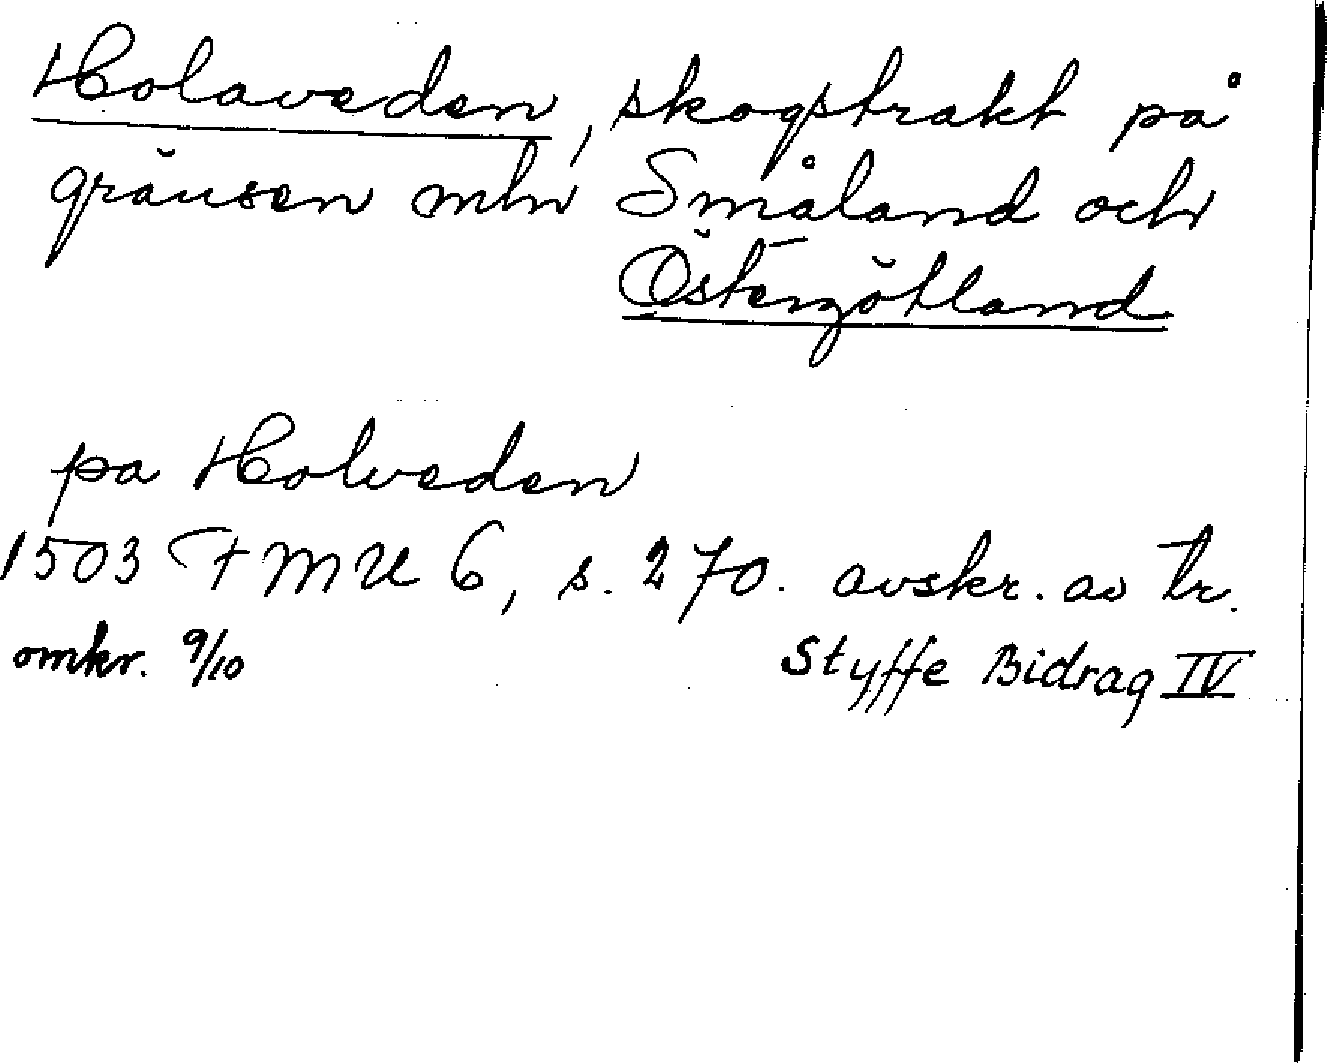 Holaveden, skogstrakt på
gränsen mln Småland och
Östergötland
pa Holveden
1503 FMU 6, s. 270. avskr. av tr.
omkr. 9/10 Styffe Bidrag IV